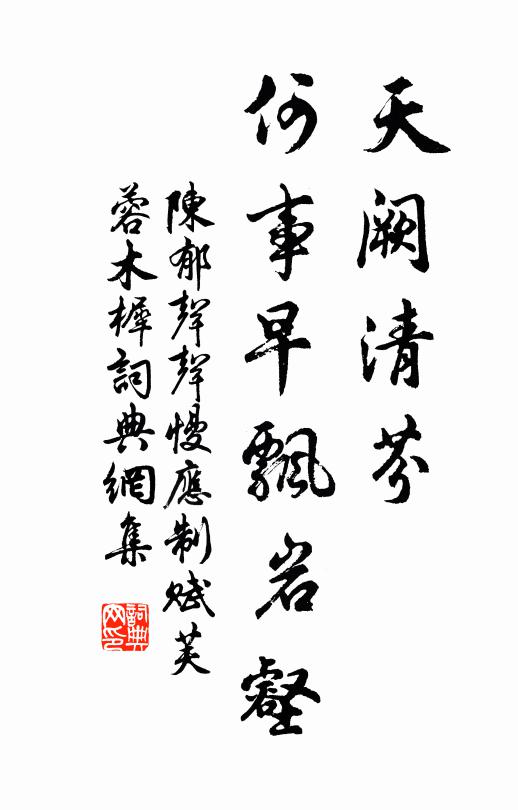 天阙清芬
何事早飄岩壑
陳郁聲聲慢應制賦芙
蓉木樨詞典網集
詞典
网印